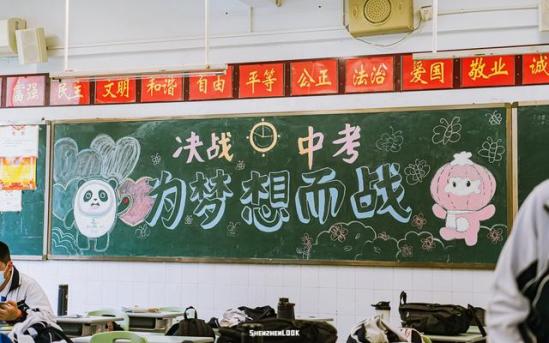 富强 民主 文明 和谐 自由 平等 公正 法治 爱国 敬业 诚
决战 中考
为梦想而战
SHENZHENLOOK